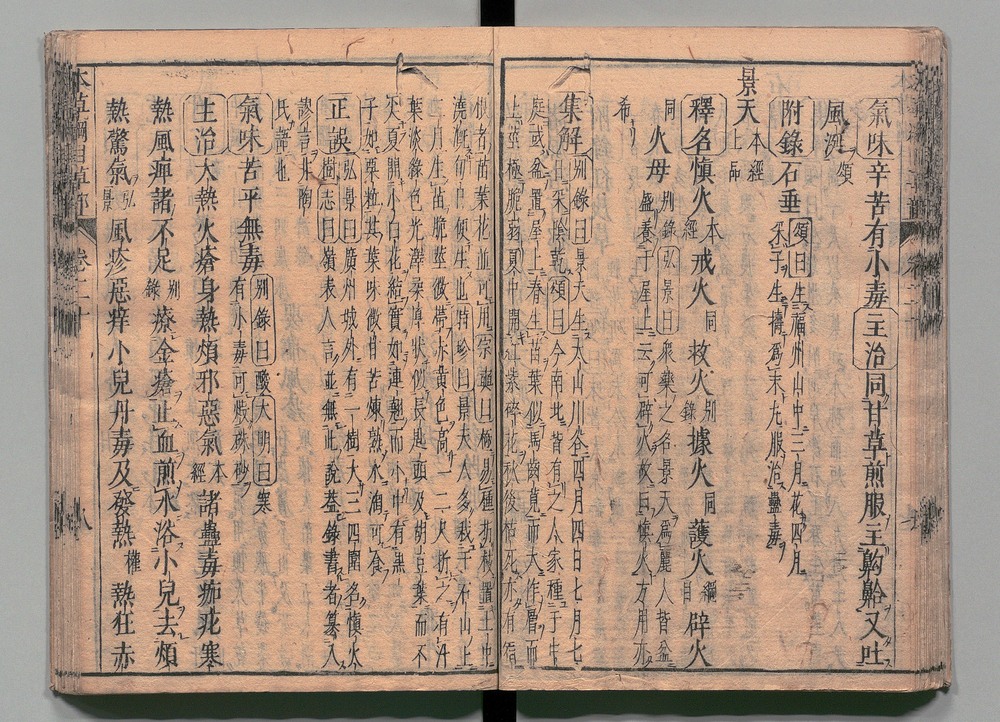 氣味辛苦有小毒主治同甘草煎服主齁䶎又吐
風涎頌
附錄石垂頌曰生福州山中三月花四月
采子生擣爲末丸服治蠱毒
景天本經上品
釋名慎火本經戒火同救火別錄據火同護火綱目辟火
同火母別錄弘景曰衆藥之名景天爲麗人皆盆
盛養于屋上云可辟火故曰慎火方用亦
希
集解別錄曰景天生太山川谷四月四日七月七
日采陰乾頌曰今南北皆有之人家種于中
庭或盆置屋上春生苗葉似馬齒莧而大作層而
上莖極脆弱夏中開紅紫碎花秋後枯死亦有宿
根者苗葉花並可用宗奭曰極易種折枝置土中
澆漑旬日便生也時珍曰景天人多栽于石山上
二月生苗脆莖微帶赤黃色高一二尺折之有汁
葉淡綠色光澤柔厚狀似長匙頭及胡豆葉而不
尖夏開小白花結實如連翹而小中有黑
子如粟粒其葉味微甘苦煠熟水淘可食
正誤弘景曰廣州城外有一樹大三四圍名慎火
樹志曰嶺表人言並無此說蓋錄書者篡入
謬言非陶
氏語也
氣味苦平無毒別錄曰酸大明曰寒
有小毒可煅硃砂
主治大熱火瘡身熱煩邪惡氣本經諸蠱毒痂疕寒
熱風痺諸不足別錄療金瘡止血煎水浴小兒去煩
熱驚氣弘景風疹惡痒小兒丹毒及發熱權熱狂赤
本草綱目草部 卷二十 八